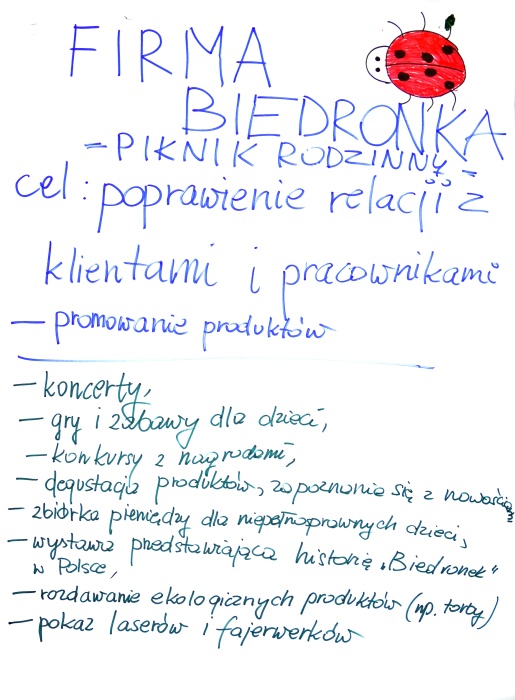 FIRMA
BIEDRONKA
- PIKNIK RODZINNY -
cel: poprawienie relacji z
klientami i pracownikami
— promowanie produktów
— koncerty,
— gry i zabawy dla dzieci,
— konkursy z nagrodami,
— degustacja produktów, zapoznanie się z nowością
— zbiórka pieniędzy dla niepełnosprawnych dzieci,
— wystawa przedstawiająca historię „Biedronek"
w Polsce,
— rozdawanie ekologicznych produktów (np. torby)
— pokaz laserów i fajerwerków